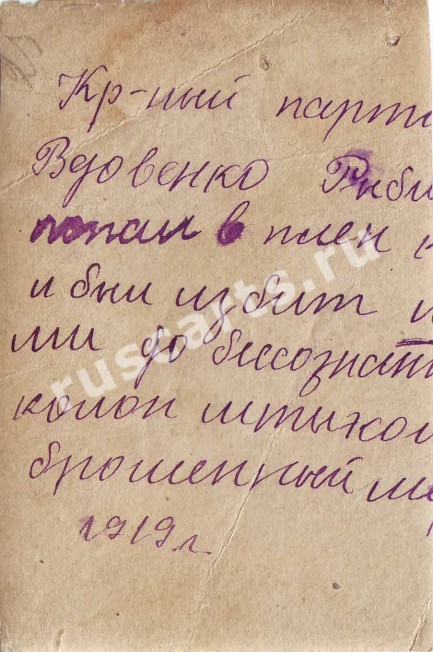 Кр-ный парт
Вдовенко
попал в плен к
и был избит
ми до бессознат
колон штыком
брошенный
1919 г.
ruscarts.ru